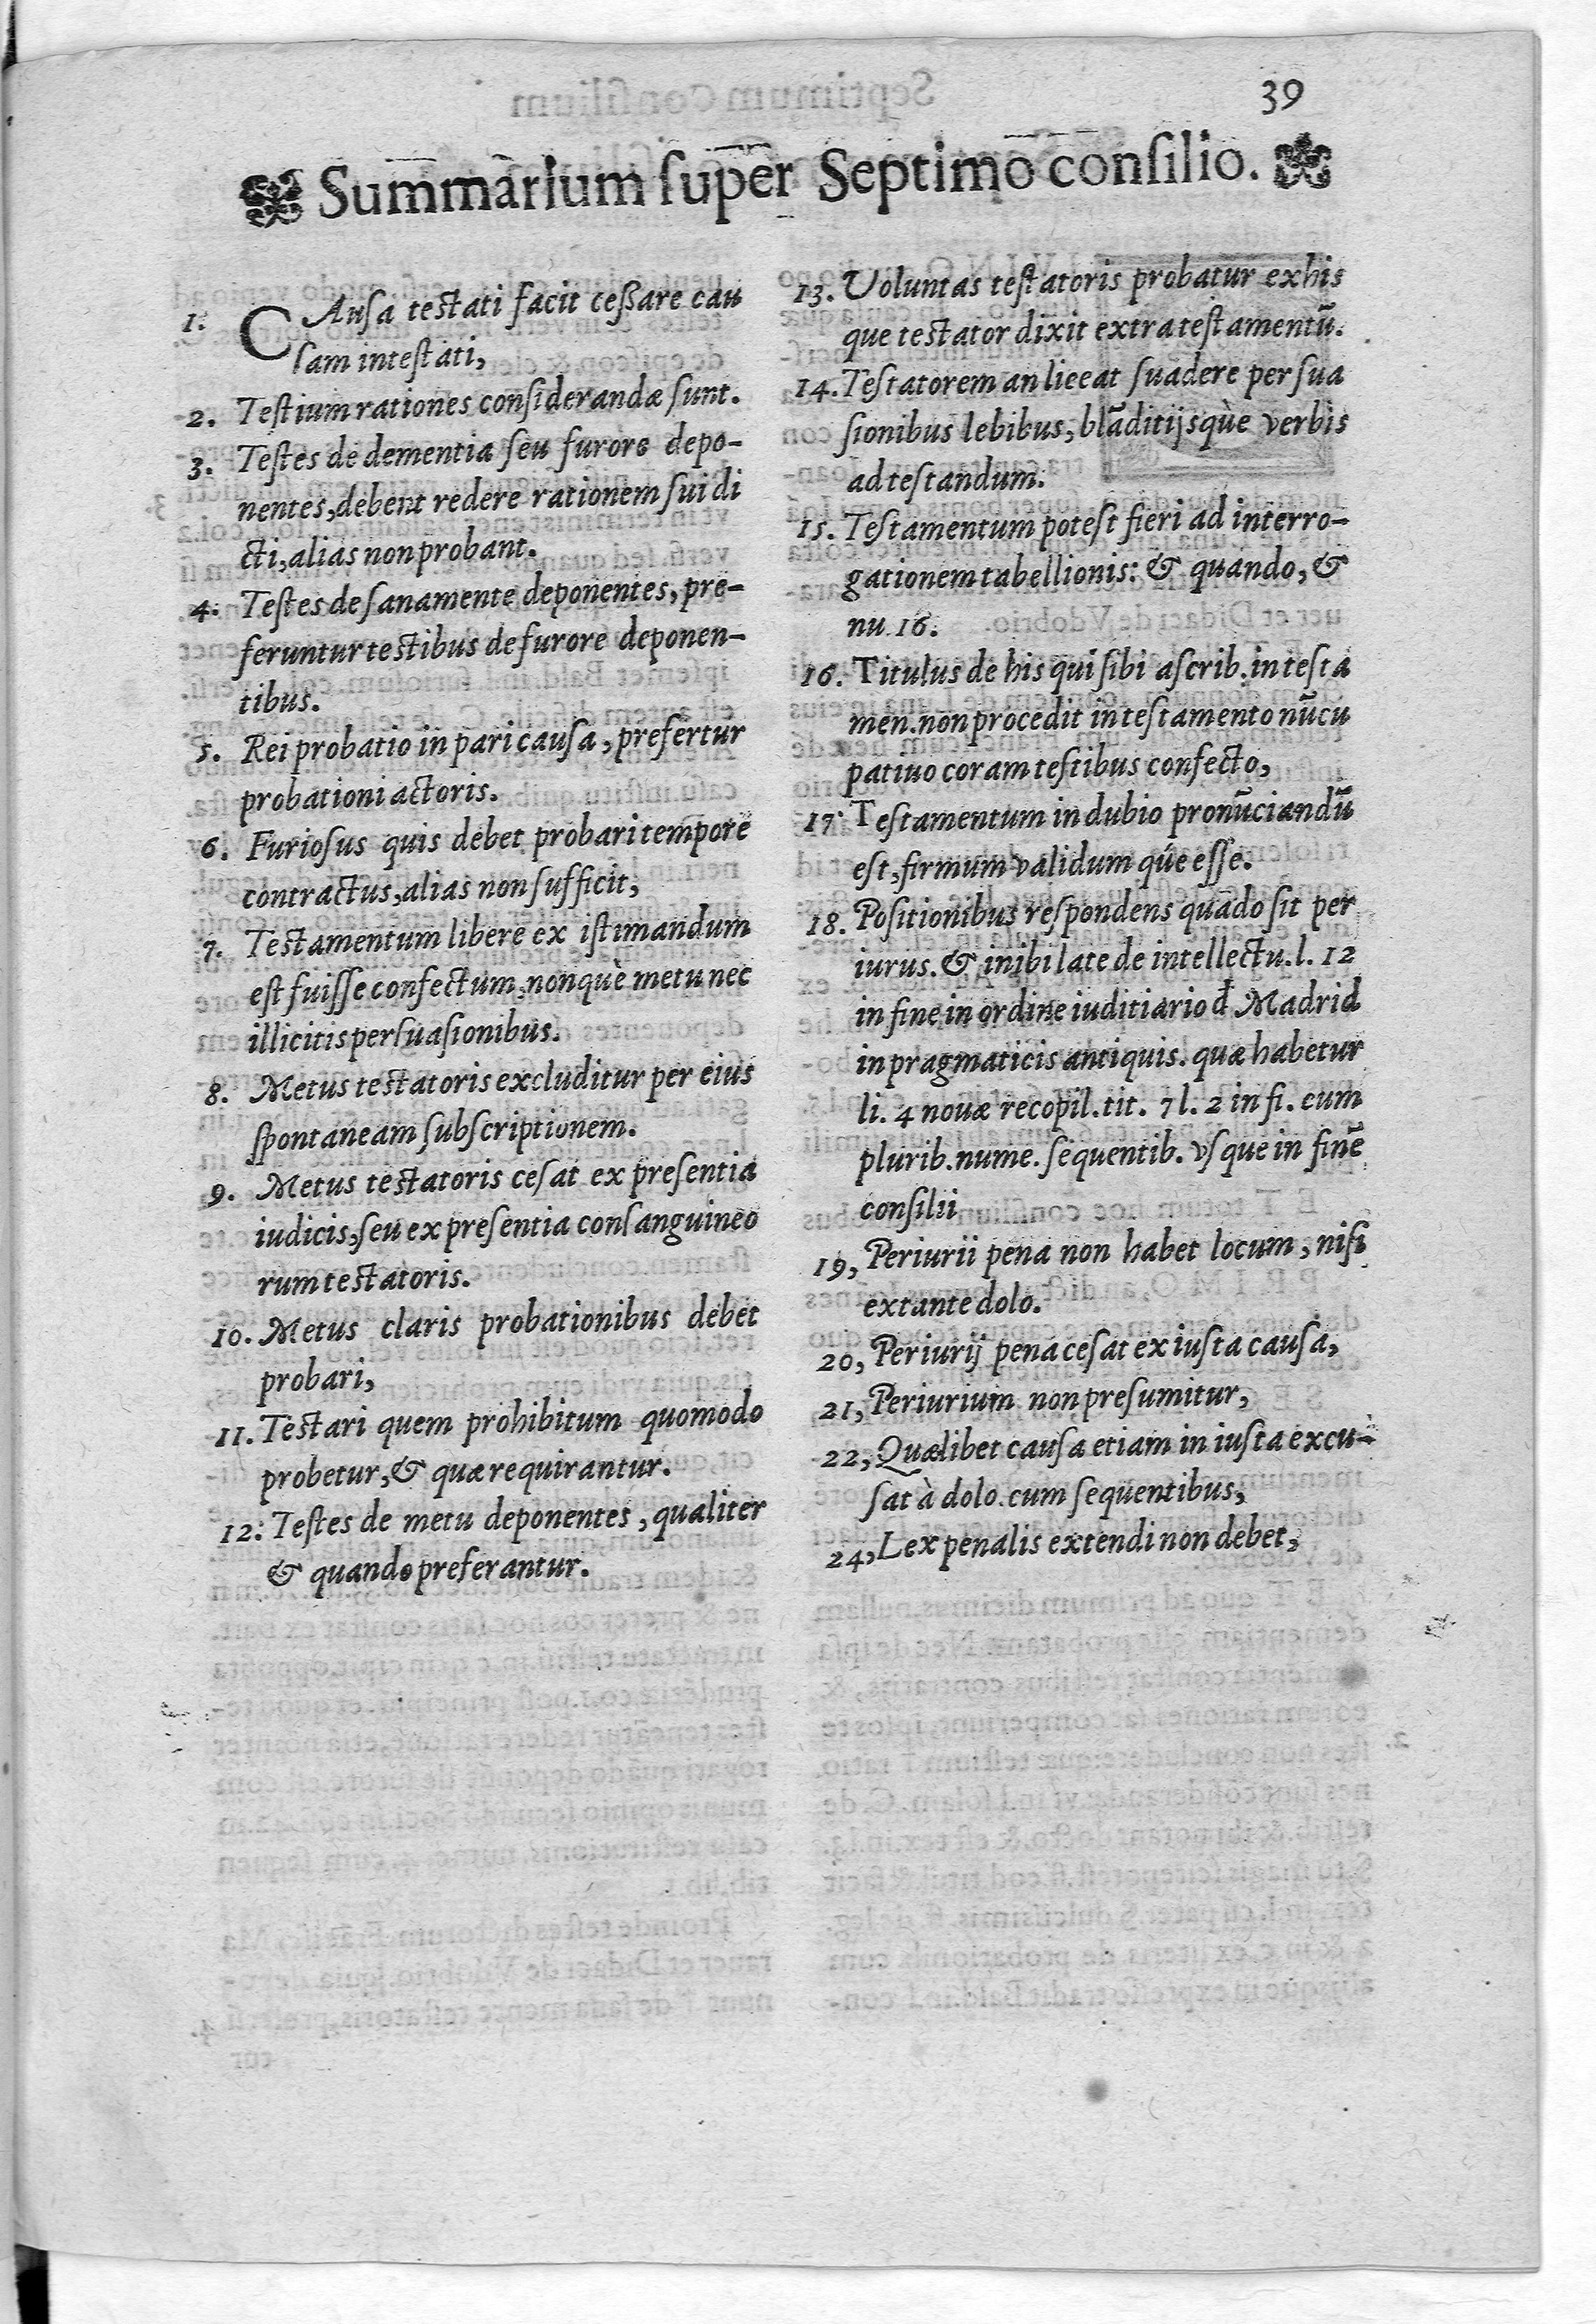 39
Summarium ſuper Septimo conſilio.
1. CAuſa testati facit ceßare cau
ſam inteſtati,
2. Teſtium rationes conſiderandæ ſunt.
3. Teſtes de dementia ſeu furore depo-
nentes, debent redere rationem ſui di
cti, alias non probant.
4. Teſtes de ſana mente deponentes, pre-
feruntur testibus de furore deponen-
tibus.
5. Rei probatio in pari cauſa, prefertur
probationi actoris.
6. Furioſus quis debet probari tempore
contractus, alias non ſufficit,
7. Testamentum libere ex iſtimandum
eſt fuiſſe confectum, nonquè metu nec
illicitis perſuaſionibus.
8. Metus testatoris excluditur per eius
ſpontaneam ſubſcriptionem.
9. Metus testatoris ceſat ex preſentia
iudicis, ſeu ex preſentia conſanguineo
rum testatoris.
10. Metus claris probationibus debet
probari,
11. Testari quem prohibitum quomodo
probetur, & quæ requirantur.
12. Teſtes de metu deponentes, qualiter
& quando preferantur.
13. Voluntas teſtatoris probatur ex his
que testator dixit extra teſtamentū.
14. Teſtatorem an liceat ſuadere per ſua
ſionibus lebibus, blāditijsquè verbis
ad teſtandum.
15. Teſtamentum poteſt fieri ad interro-
gationem tabellionis: & quando, &
nu. 16.
16. Titulus de his qui ſibi aſcrib. in teſta
men. non procedit in teſtamento nūcu
patiuo coram teſtibus confecto,
17. Teſtamentum in dubio pronūciandū
eſt, firmum validum qúe eſſe.
18. Poſitionibus reſpondens quādo ſit per
iurus. & inibi late de intellectu. l. 12
in fine in ordine iuditiario đ Madrid
in pragmaticis antiquis. quæ habetur
li. 4 nouæ recopil. tit. 7 l. 2 in fi. cum
plurib. nume. ſequentib. vſque in finē
conſilii
19, Periurii pena non habet locum, niſi
extante dolo.
20, Periurij pena ceſat ex iuſta cauſa,
21, Periurium non preſumitur,
22, Quælibet cauſa etiam in iuſta excu-
ſat à dolo. cum ſequentibus,
24, Lex penalis extendi non debet,